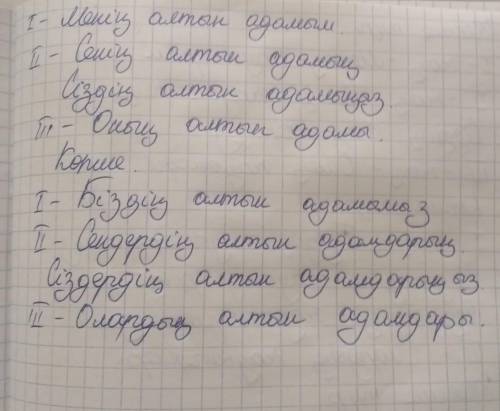 I - Менің алтын адамым.
II - Сенің алтын адамың
Сіздің алтын адамыңыз.
III - Оның алтын адамы.
Көпше.
I - Біздің алтын адамымыз
II - Сендердің алтын адамдарың.
Сіздердің алтын адамдарыңыз
III - Олардың алтын адамдары.